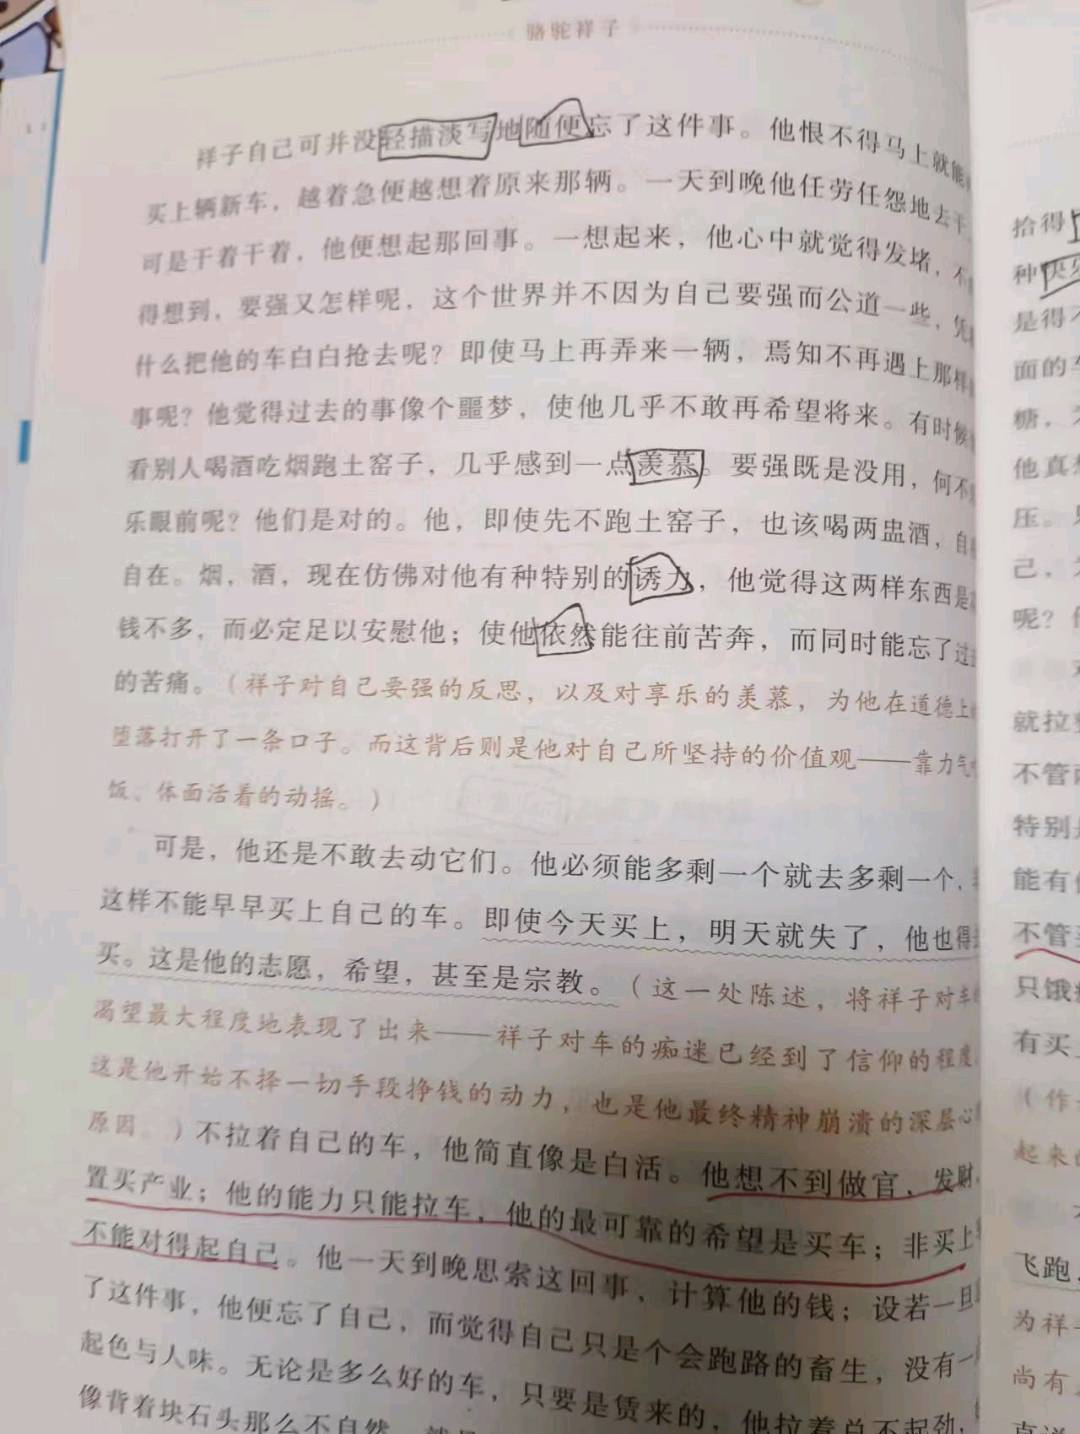 骆驼祥子
祥子自己可并没轻描淡写地随便忘了这件事。他恨不得马上就能
买上辆新车，越着急便越想着原来那辆。一天到晚他任劳任怨地去干，
可是干着干着，他便想起那回事。一想起来，他心中就觉得发堵，不
得想到，要强又怎样呢，这个世界并不因为自己要强而公道一些，凭
什么把他的车白白抢去呢？即使马上再弄来一辆，焉知不再遇上那样
事呢？他觉得过去的事像个噩梦，使他几乎不敢再希望将来。有时候
看别人喝酒吃烟跑土窑子，几乎感到一点羡慕。要强既是没用，何不
乐眼前呢？他们是对的。他，即使先不跑土窑子，也该喝两盅酒，自
自在。烟，酒，现在仿佛对他有种特别的诱力，他觉得这两样东西是
钱不多，而必定足以安慰他；使他依然能往前苦奔，而同时能忘了过
的苦痛。（祥子对自己要强的反思，以及对享乐的羡慕，为他在道德上
堕落打开了一条口子。而这背后则是他对自己所坚持的价值观——靠力气
饭、体面活着的动摇。）
可是，他还是不敢去动它们。他必须能多剩一个就去多剩一个，
这样不能早早买上自己的车。即使今天买上，明天就失了，他也得
买。这是他的志愿，希望，甚至是宗教。（这一处陈述，将祥子对车
渴望最大程度地表现了出来——祥子对车的痴迷已经到了信仰的程度
这是他开始不择一切手段挣钱的动力，也是他最终精神崩溃的深层心
原因。）不拉着自己的车，他简直像是白活。他想不到做官，发财，
置买产业；他的能力只能拉车，他的最可靠的希望是买车；非买上
不能对得起自己。他一天到晚思索这回事，计算他的钱；设若一旦
了这件事，他便忘了自己，而觉得自己只是个会跑路的畜生，没有一
起色与人味。无论是多么好的车，只要是赁来的，他拉着总不起劲，
像背着块石头那么不自然
拾得
种快
是得不
面的
糖，
他真
压。
己，
呢？
就拉
不管
特别
能有
不管
只饿
有买
（作
起来
飞跑，
为祥
尚有